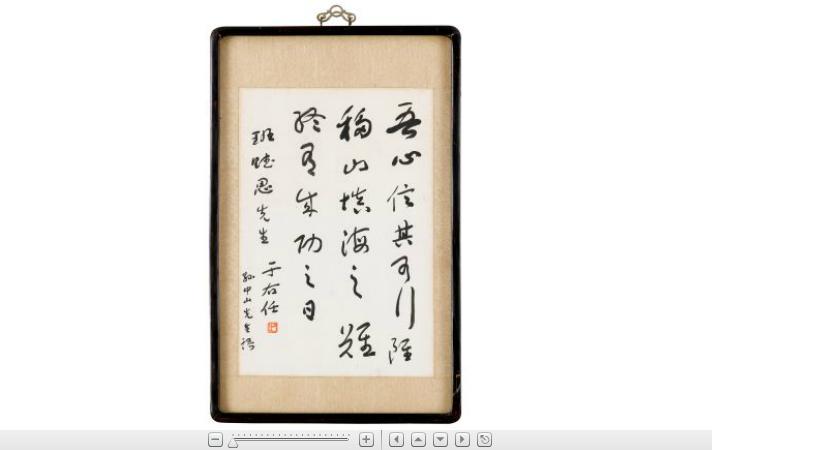 吾心信其可行雖
移山填海之難
終有成功之日
班思先生
于右任
孫中山先生語